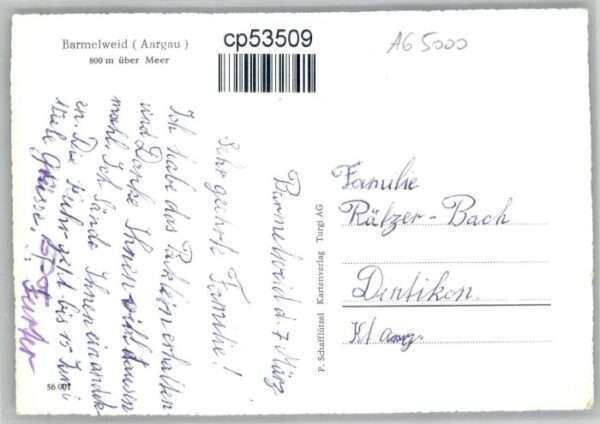 Barmelweid ( Aargau )
800 m über Meer
cp53509
AG 5000
Barmelweid d. 7 März
Sehr geehrte Familie!
Ich habe das Päcklein erhalten
und Danke Ihnen
mahl. Ich Ihnen ein andek
en. Die Kuhr geht bis 15 Juni
viele Grüsse
P. Schafflützel Kartenverlag Turgi AG
Familie
Rätzer-Bach
Dentikon.
Kt Arg.
56 001